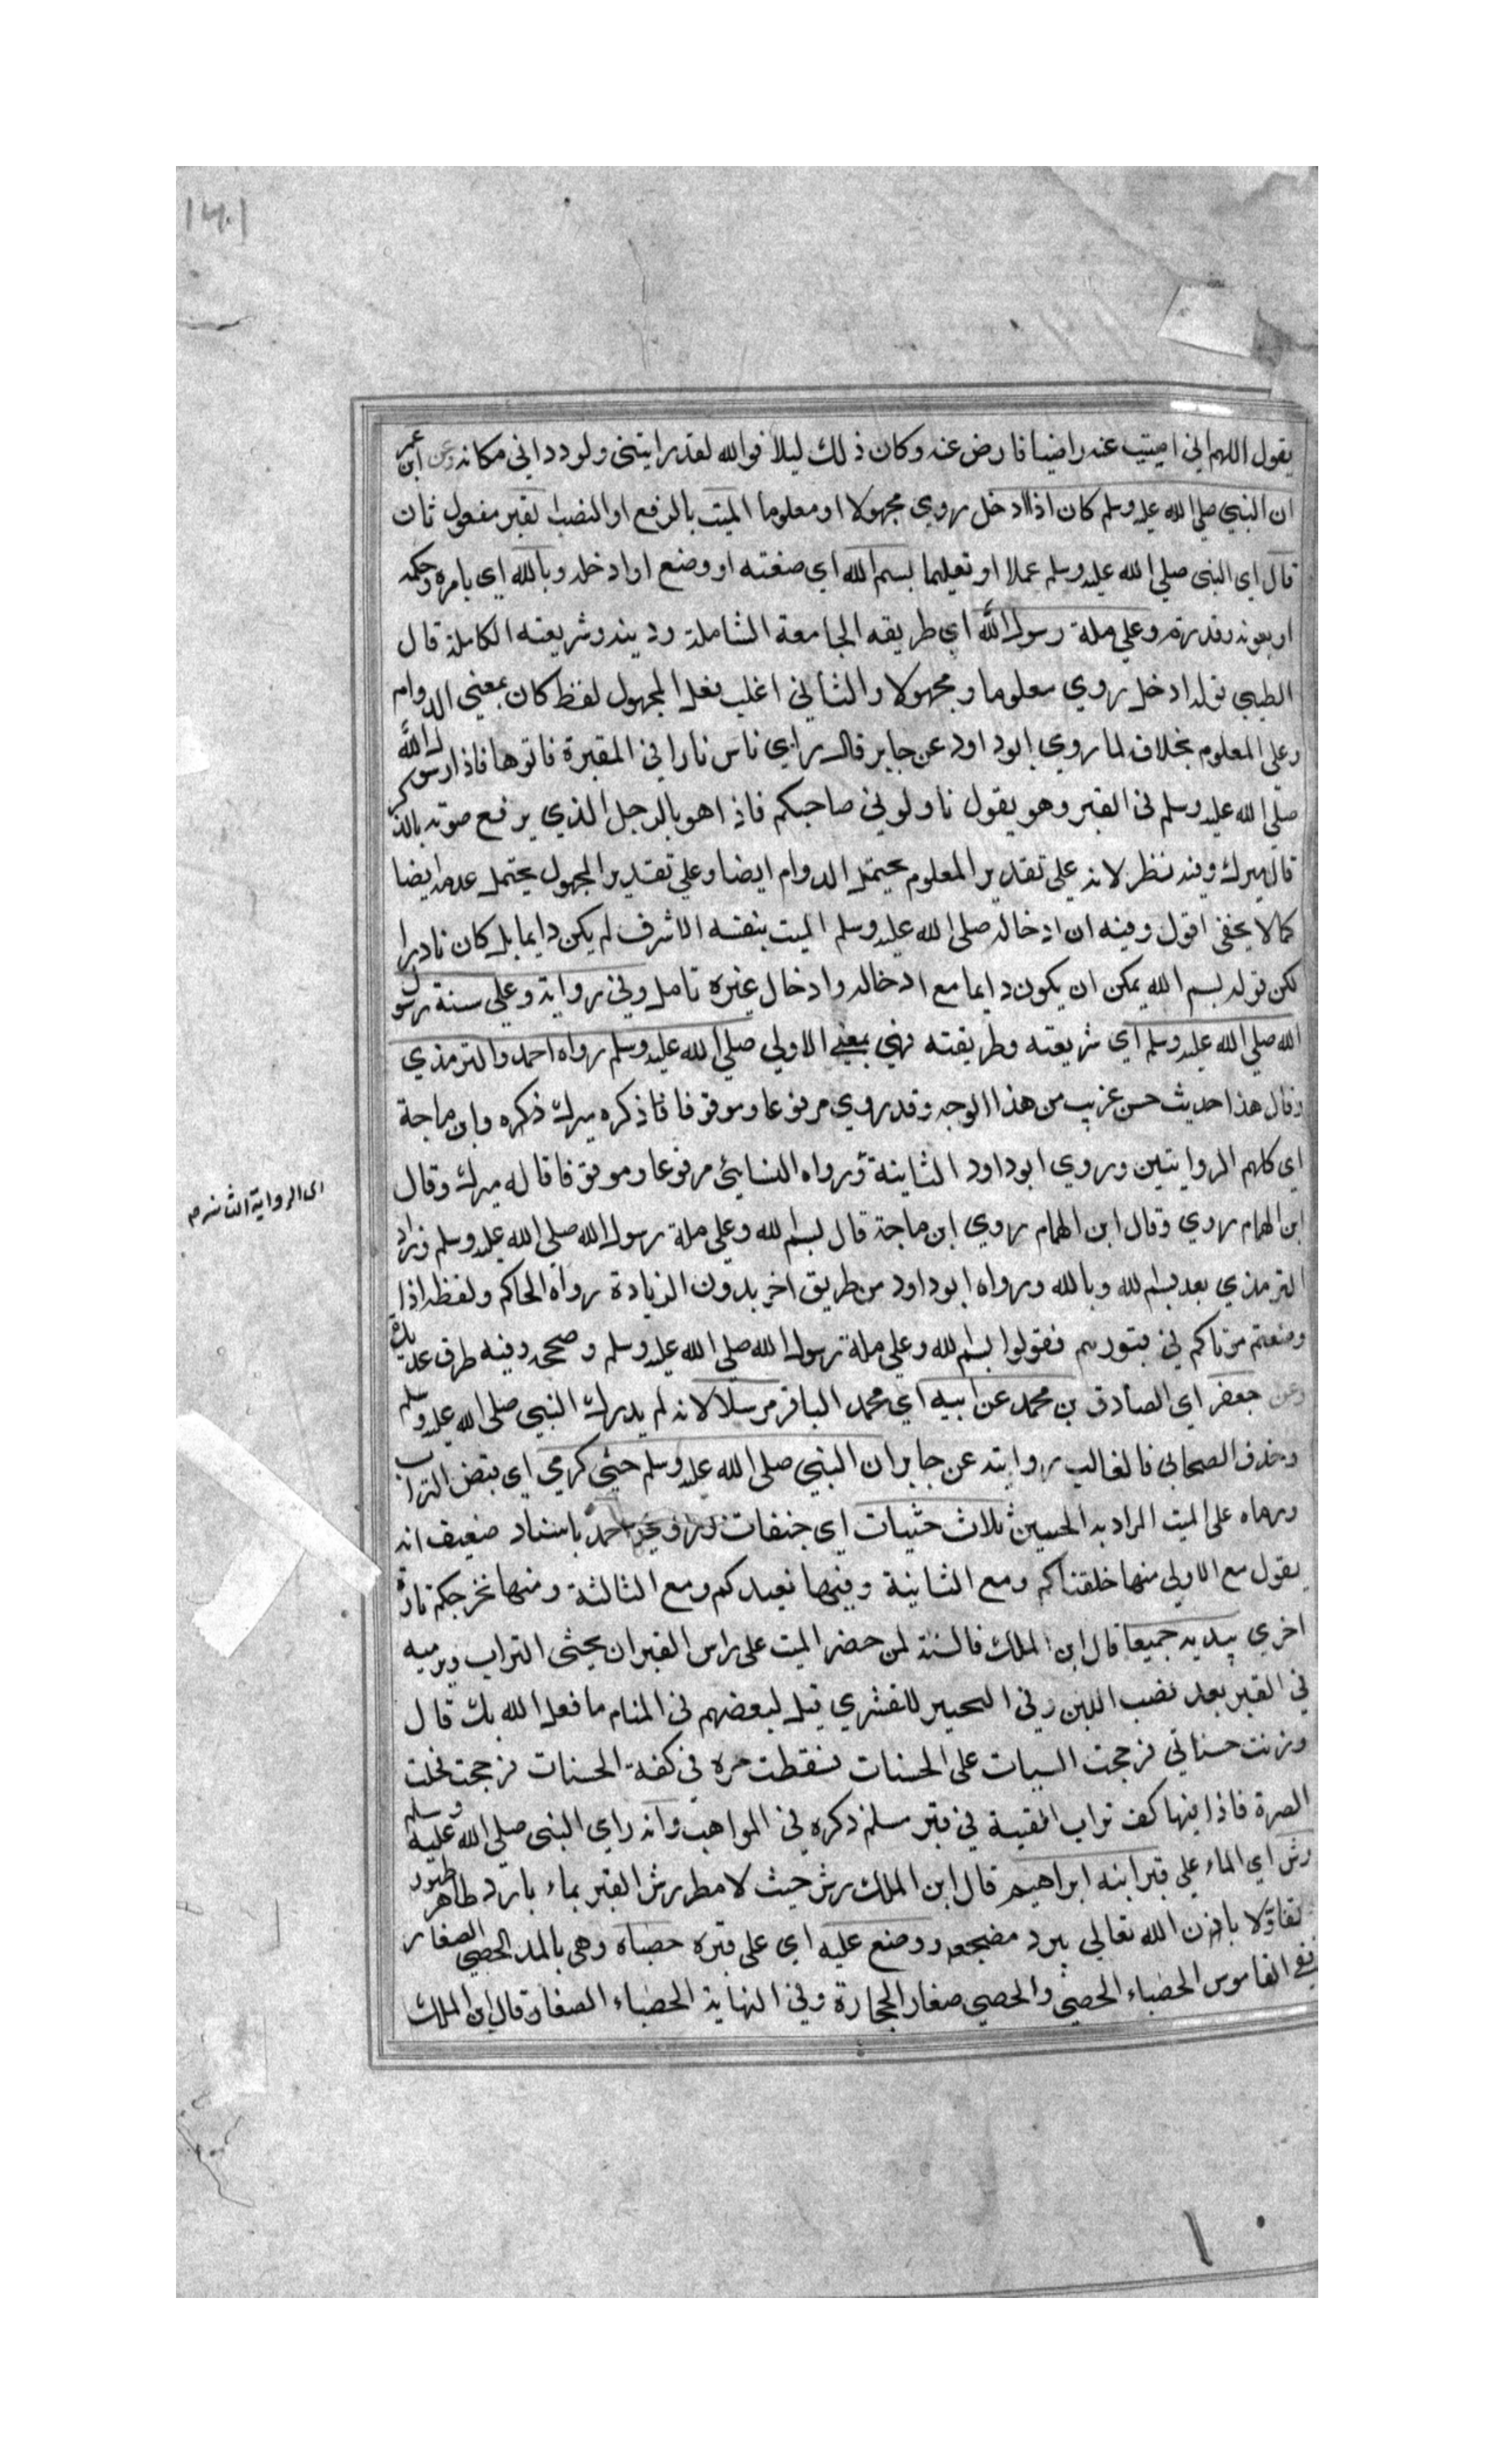 ١٦٠١
يقول اللهم اني امسيت عنه راضيا فارض عنه وكان ذلك ليلا فوالله لقد رايتني ولوددت اني مكانه وعن ابن عمر
ان النبي صلي الله عليه وسلم كان اذا ادخل روي مجهولا او معلوما الميت بالرفع او النصب القبر مفعول ثان
قال اي النبي صلي الله عليه وسلم عملا او تعليما بسم الله اي صنعته او وضع او ادخله وبالله اي بامره وحكمه
او بعونه وقدرته وعلي ملة رسول الله اي طريقه الجامعة الشاملة ودينه وشريعته الكاملة قال
الطيبي قوله ادخل روي معلوما ومجهولا والثاني اغلب فعلي المجهول لفظ كان بمعني الدوام
وعلي المعلوم بخلاف لما روي ابو داود عن جابر قال راي ناس نارا في المقبرة فاتوها فاذا رسول الله
صلي الله عليه وسلم في القبر وهو يقول ناولوني صاحبكم فاذا هو بالرجل الذي يرفع صوته بالذكر
قال ميرك وفيه نظر لانه علي تقدير المعلوم يحتمل الدوام ايضا وعلي تقدير المجهول يحتمل عدمه ايضا
كما لا يخفي اقول وفيه ان ادخاله صلي الله عليه وسلم الميت بنفسه الاشرف لم يكن دايما بل كان نادرا
لكن قوله بسم الله يمكن ان يكون دايما مع ادخاله وادخال غيره تامل وفي رواية وعلي سنة رسول
الله صلي الله عليه وسلم اي شريعته وطريقته فهي بمعني الاولي صلي الله عليه وسلم رواه احمد والترمذي
وقال هذا حديث حسن غريب من هذا الوجه وقد روي مرفوعا وموقوفا فاذكره ميرك ذكره وابن ماجة
اي كلهم الروايتين وروي ابو داود الثانية ورواه النسائي مرفوعا وموقوفا قاله ميرك وقال
ابن الهمام روي وقال ابن الهمام روي ابن ماجة قال بسم الله وعلي ملة رسول الله صلي الله عليه وسلم وزاد
الترمذي بعد بسم الله وبالله ورواه ابو داود من طريق اخر بدون الزيادة رواه الحاكم ولفظه اذا
وضعتم موتاكم في قبورهم فقولوا بسم الله وعلي ملة رسول الله صلي الله عليه وسلم وصححه وفيه طرق عديدة
وعن جعفر اي الصادق بن محمد عن ابيه اي محمد الباقر مرسلا لانه لم يدرك النبي صلي الله عليه وسلم
وحذف الصحابي فالغالب روايته عن جابر ان النبي صلي الله عليه وسلم حثي كرمي اي قبض التراب
ورماه علي الميت المراد به الجنس ثلاث حثيات اي حفنات احمد باسناد ضعيف انه
يقول مع الاولي منها خلقناكم ومع الثانية وفيها نعيدكم ومع الثالثة ومنها نخرجكم تارة
اخري بيديه جميعا قال ابن الملك فالسنة لمن حضر الميت علي راس القبر ان يحثي التراب ويرميه
في القبر بعد نصب اللبن وفي التحبير للقشري قيل لبعضهم في المنام ما فعل الله بك قال
وزنت حسناتي فرجحت السيات علي الحسنات فسقطت صرة في كفة الحسنات فرجحت فحلت
الصرة فاذا فيها كف تراب القيته في قبر مسلم ذكره في المواهب وانه راي النبي صلي الله عليه وسلم
رش اي الماء علي قبر ابنه ابراهيم قال ابن الملك رش حيث لا مطر رش القبر بماء بارد طاهر طهور
تفاؤلا باذن الله تعالي يبرد مضجعه ووضع عليه اي علي قبره حصباء وهي بالمد الحصي الصغار
ففي القاموس الحصباء الحصي والحصي صغار الحجارة وفي النهاية الحصباء الصغار قال ابن الملك
اي الرواية الثانية م